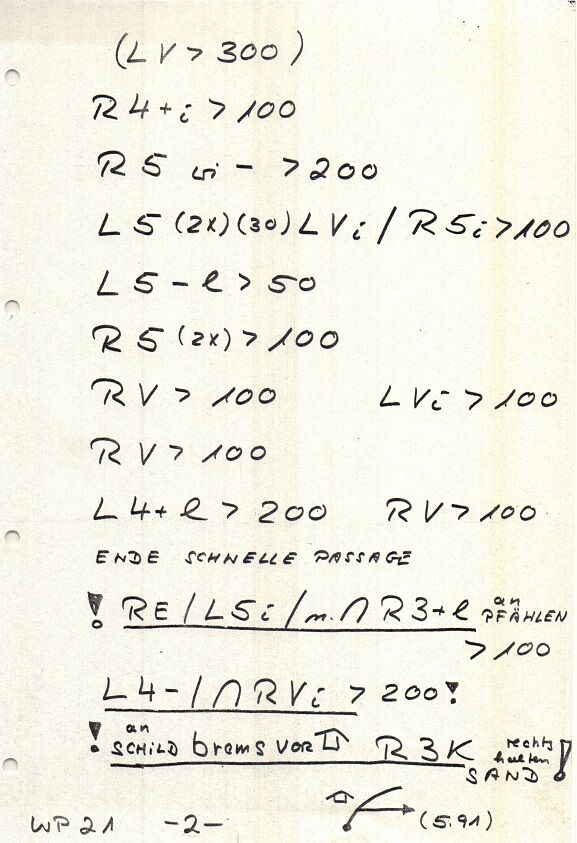 (LV > 300)
R4+i > 100
R5 wi - > 200
L5 (2x) (30) LVi / R5i > 100
L5 - l > 50
R5 (2x) > 100
RV > 100 LVi > 100
RV > 100
L4+ l > 200 RV > 100
ENDE SCHNELLE PASSAGE
! RE / L5i / m. ∩ R3+l an PFÄHLEN
> 100
L4- / ∩ RVi > 200 !
! an SCHILD brems VOR R3K rechts halten SAND !
WP21 -2- (5.91)